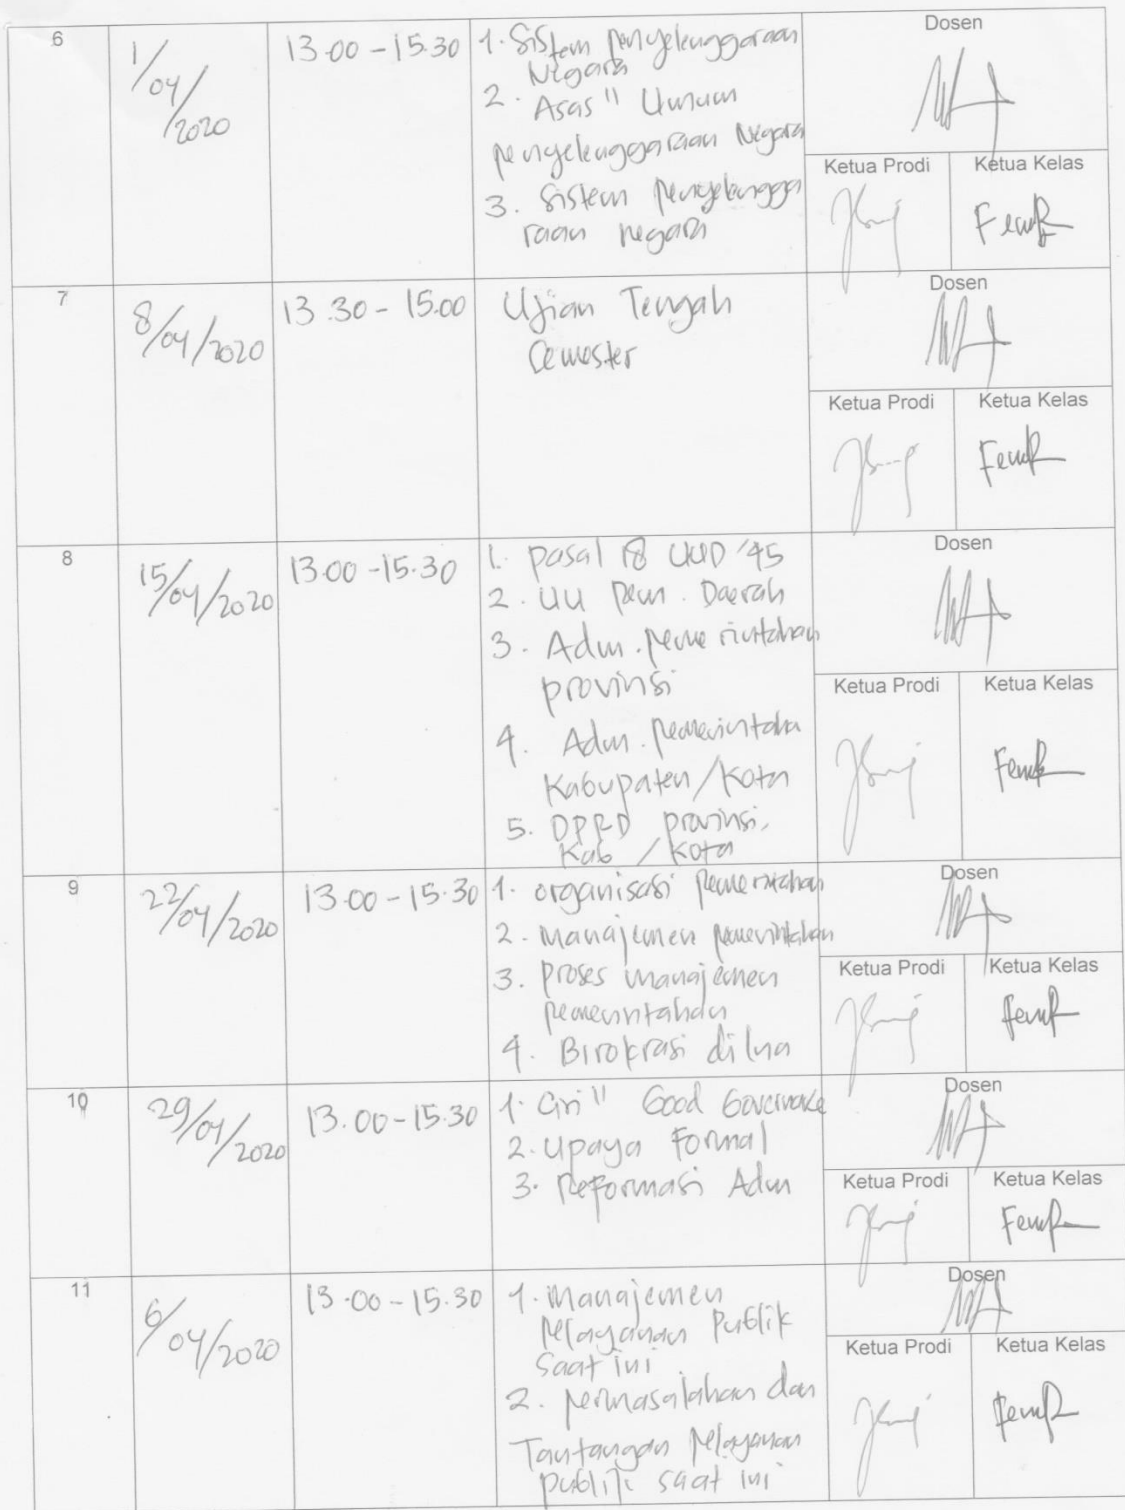 6
1/04/2020
13.00 - 15.30
1. Sistem penyelenggaraan
Negara
2. Asas" Umum
penyelenggaraan Negara
3. Sistem penyelengga
raan negara
Dosen
Ketua Prodi
Ketua Kelas
7
8/04/2020
13.30 - 15.00
Ujian Tengah
Semester
Dosen
Ketua Prodi
Ketua Kelas
8
15/04/2020
13.00 - 15.30
1. pasal 18 UUD '45
2. UU Pem. Daerah
3. Adm. pemerintahan
provinsi
4. Adm. pemerintaha
Kabupaten/Kota
5. DPRD provinsi,
Kab / Kota
Dosen
Ketua Prodi
Ketua Kelas
9
22/04/2020
13.00 - 15.30
1. organisasi pemerintahan
2. manajemen pemerintahan
3. proses manajemen
pemerintahan
4. Birokrasi
Dosen
Ketua Prodi
Ketua Kelas
10
29/04/2020
13.00 - 15.30
1. Ciri" Good Governace
2. Upaya Formal
3. Reformasi Adm
Dosen
Ketua Prodi
Ketua Kelas
11
6/04/2020
13.00 - 15.30
1. manajemen
pelayanan Publik
saat ini
2. permasalahan dan
Tantangan pelayanan
publik saat ini
Dosen
Ketua Prodi
Ketua Kelas